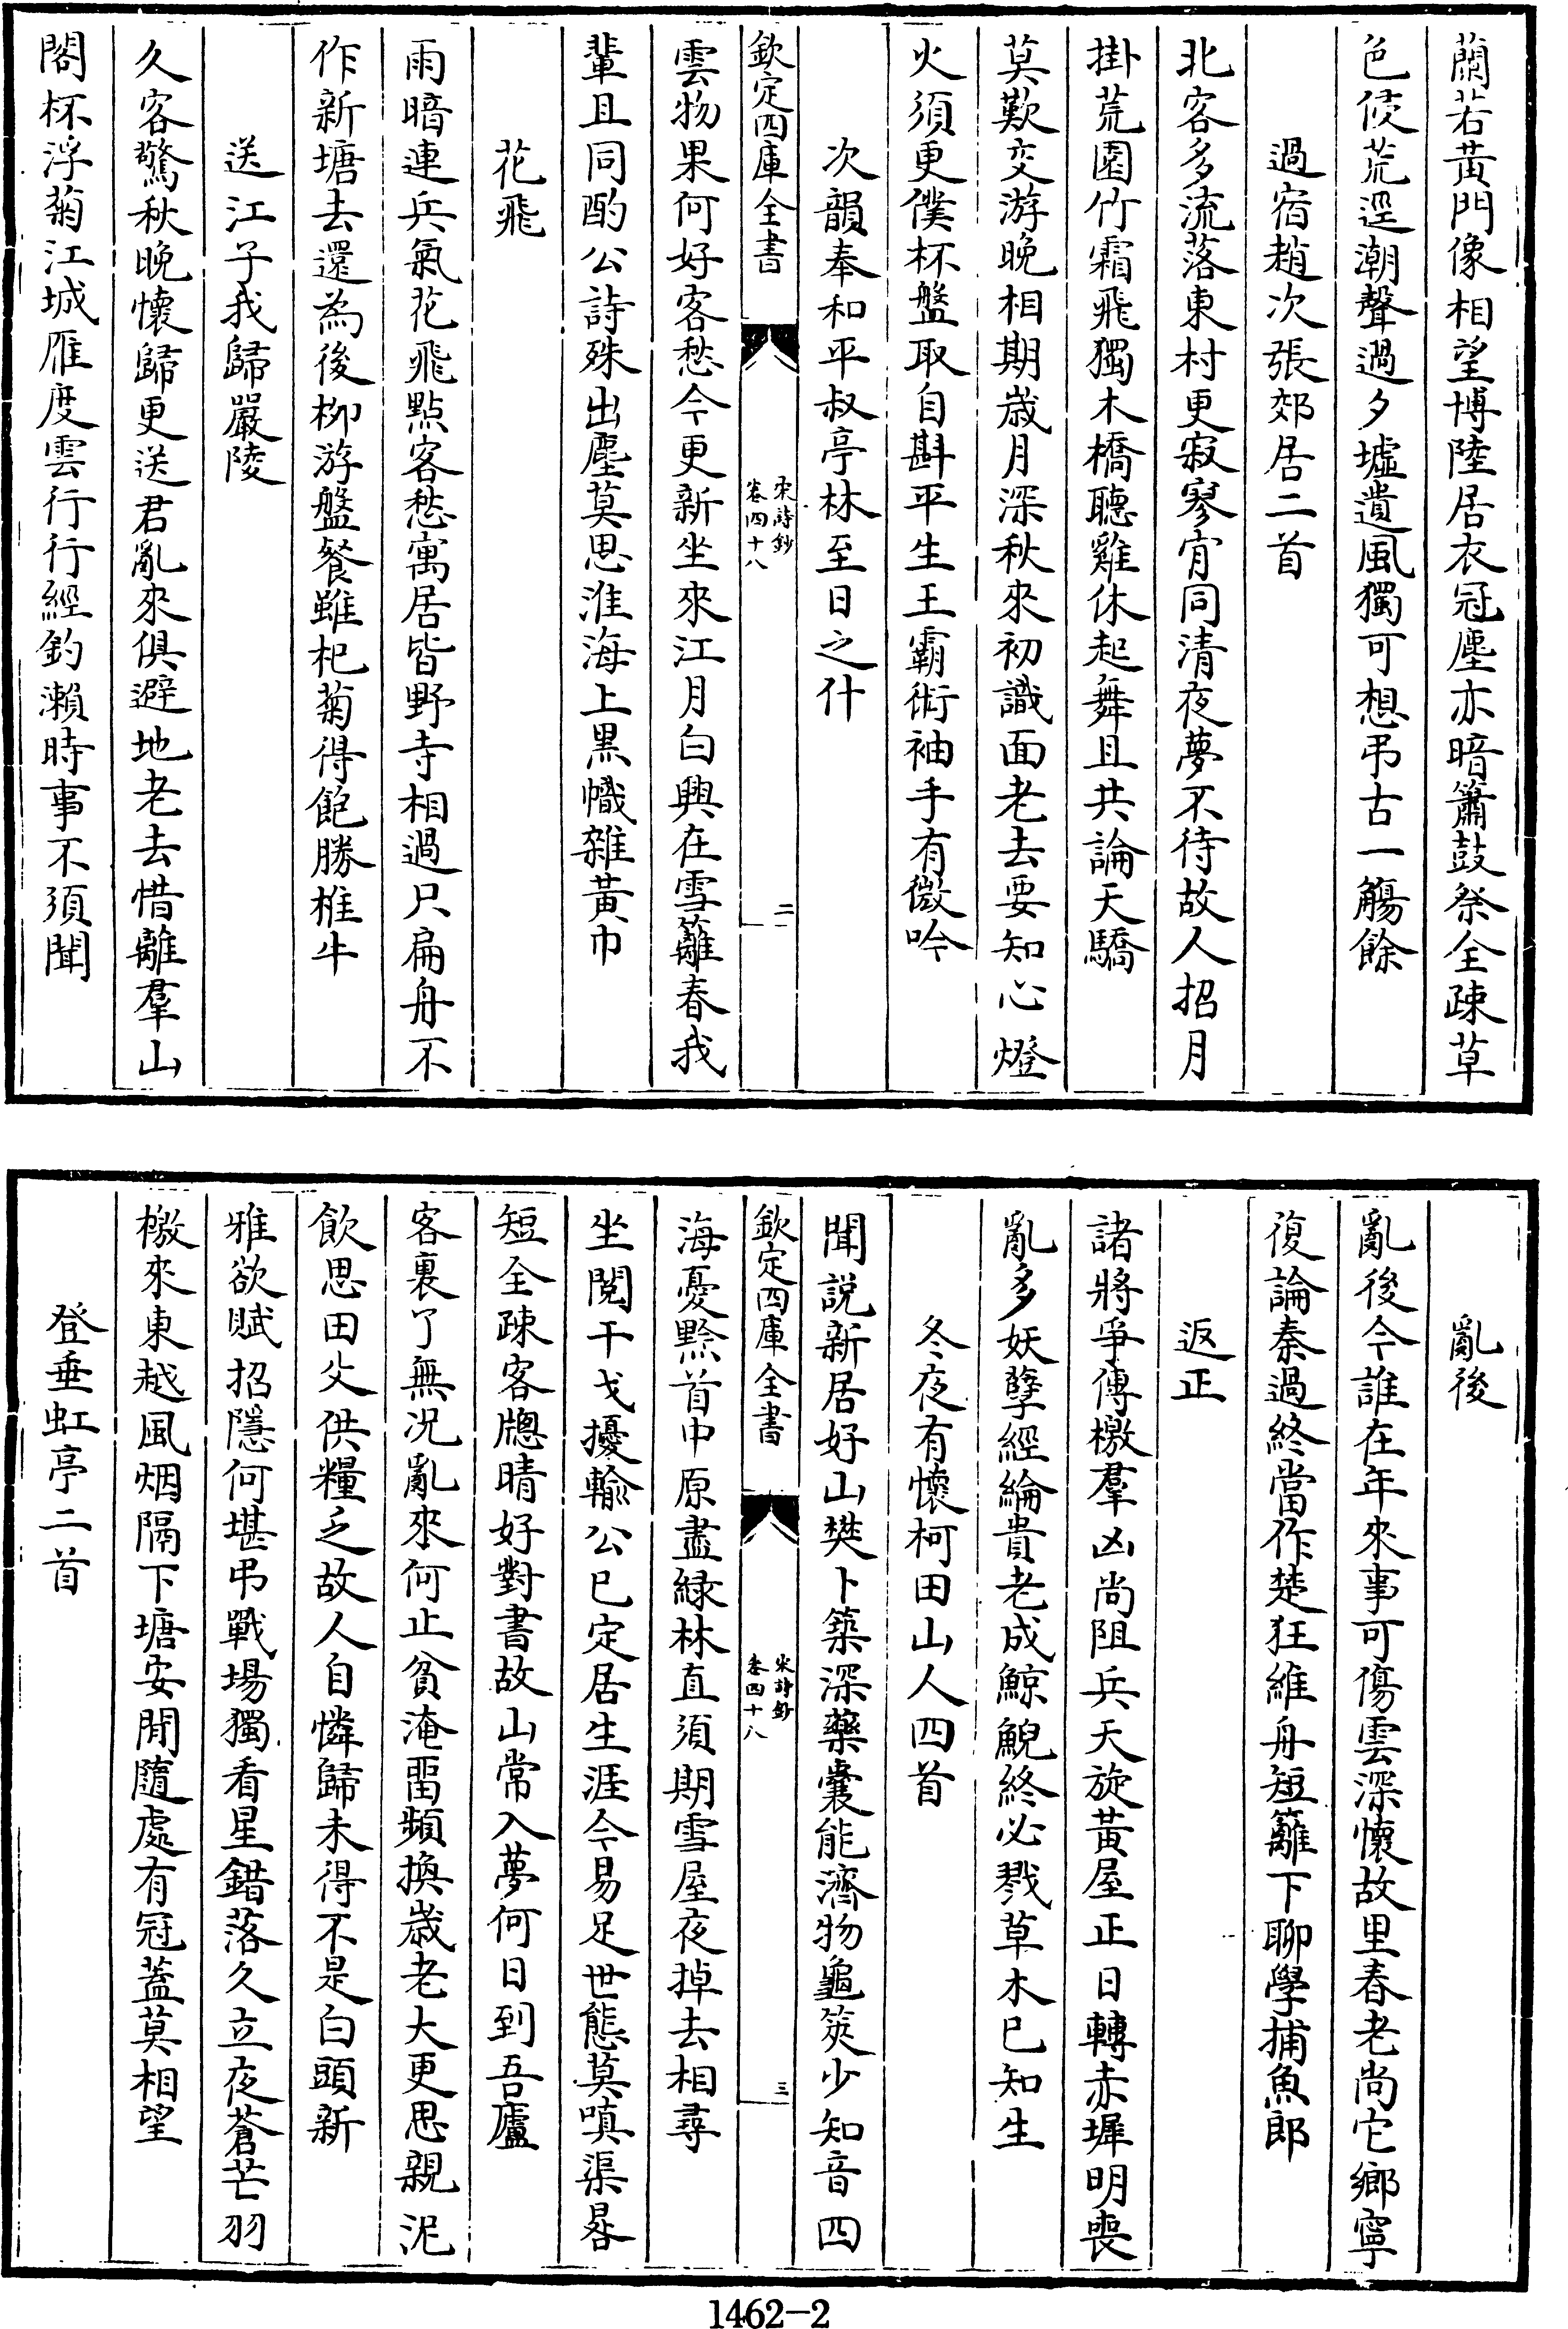 蘭若黃門像相望博陸居衣冠塵亦暗簫鼓祭全疎草
色侵荒逕潮聲過夕墟遺風獨可想弔古一觴餘
過宿趙次張郊居二首
北客多流落東村更寂寥宵同清夜夢不待故人招月
掛荒園竹霜飛獨木橋聽雞休起舞且共論天驕
莫歎交游晚相期歲月深秋來初識面老去要知心燈
火須更僕杯盤取自斟平生王霸術袖手有微吟
次韻奉和平叔亭林至日之什
欽定四庫全書
宋詩鈔
卷四十八
二
雲物果何好客愁今更新坐來江月白興在雪籬春我
輩且同酌公詩殊出塵莫思淮海上黑幟雜黃巾
花飛
雨暗連兵氣花飛點客愁寓居皆野寺相過只扁舟不
作新塘去還為後柳游盤餐雖杞菊得飽勝椎牛
送江子我歸嚴陵
久客驚秋晚懷歸更送君亂來俱避地老去惜離羣山
閣杯浮菊江城雁度雲行行經釣瀨時事不須聞
亂後
亂後今誰在年來事可傷雲深懷故里春老尚它鄉寧
復論秦過終當作楚狂維舟短籬下聊學捕魚郎
返正
諸將爭傳檄羣凶尚阻兵天旋黃屋正日轉赤墀明喪
亂多妖孽經綸貴老成鯨鯢終必戮草木已知生
冬夜有懷柯田山人四首
聞説新居好山樊卜築深藥囊能濟物龜筴少知音四
欽定四庫全書
宋詩鈔
卷四十八
三
海憂黔首中原盡緑林直須期雪屋夜掉去相尋
坐閲干戈擾輸公已定居生涯今易足世態莫嗔渠晷
短全疎客牕晴好對書故山常入夢何日到吾廬
客裏了無况亂來何止貧淹畱頻換歲老大更思親泥
飲思田父供糧乏故人自憐歸未得不是白頭新
雅欲賦招隱何堪弔戰場獨看星錯落久立夜蒼茫羽
檄來東越風烟隔下塘安閒隨處有冠蓋莫相望
登垂虹亭二首
1462-2